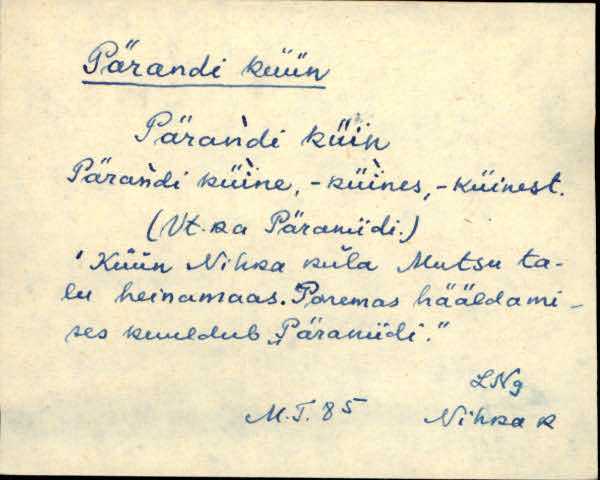 Pärandi küün
Pärand̀i küin
Pärand̀i küìne, -küìnes, -küinest.
(Vt. ka Päramiidi.)
'Küün Nihka küla Mutsu ta-
lu heinamaas. Poremas hääldami-
ses kuuldub „Päramiidi."
LNg
M.T. 85 Nihka k